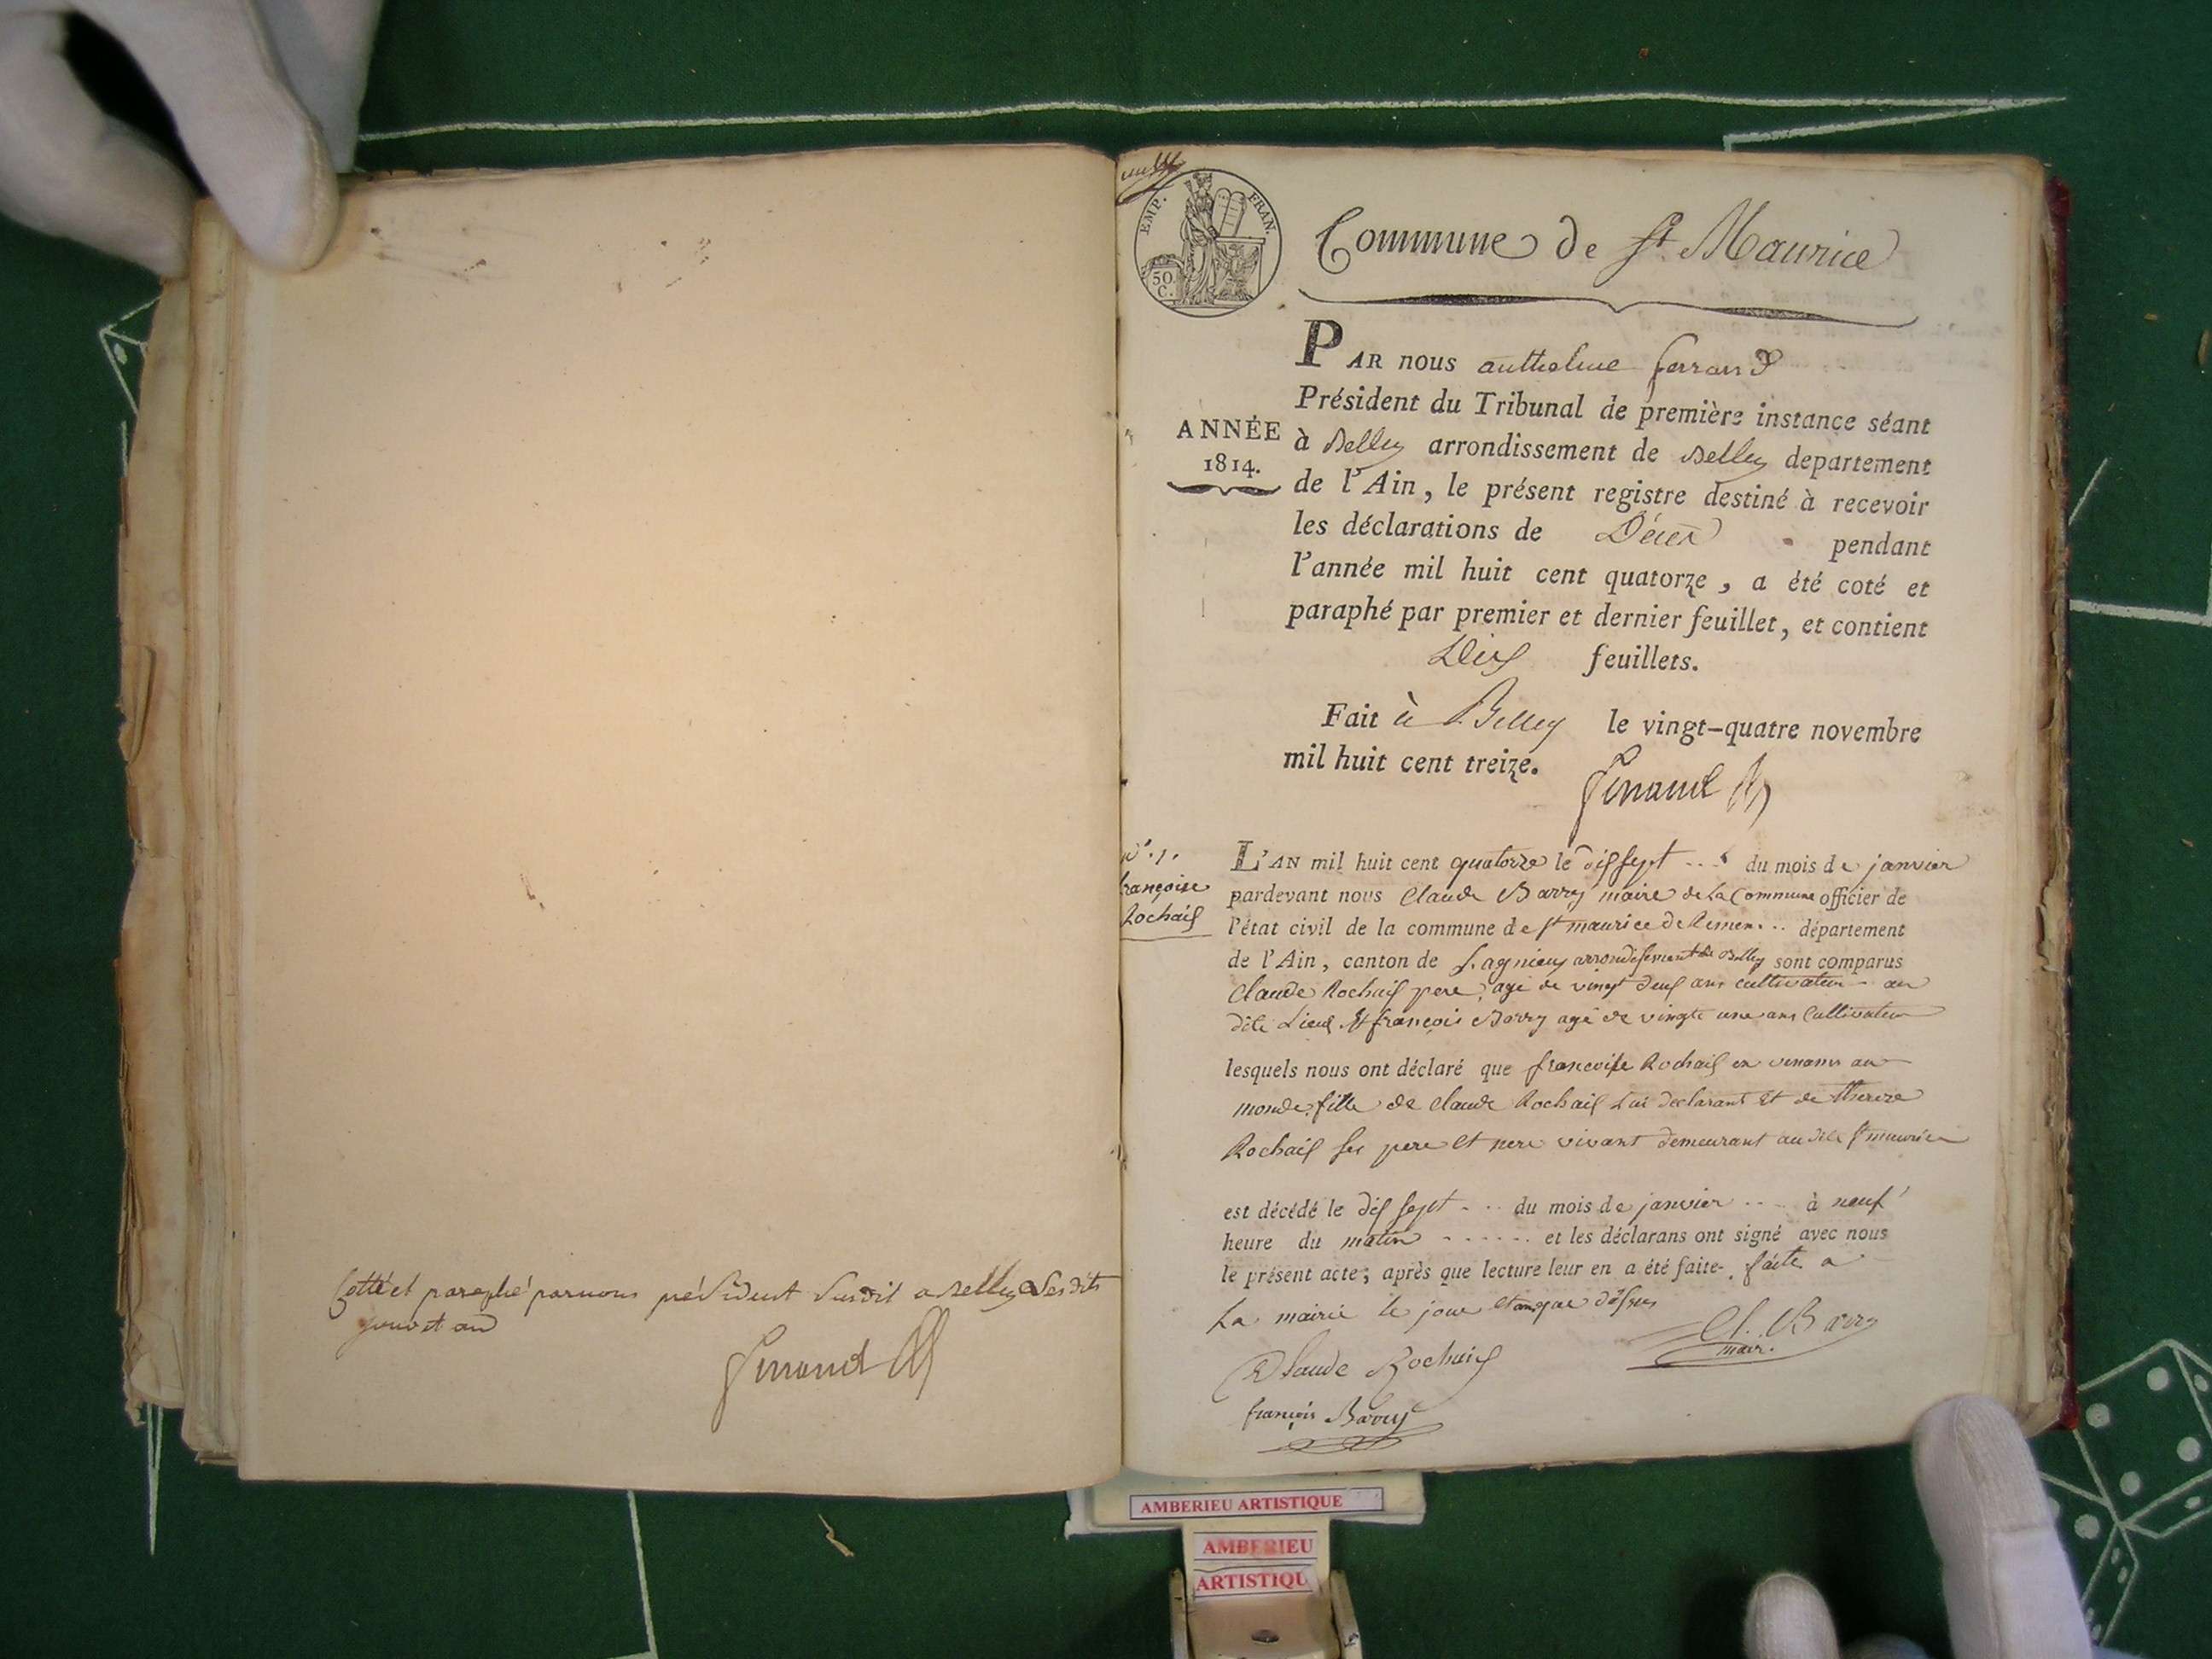 Cotté et paraphé par nous président susdit a Belley les dits
jour et an
EMP. FRAN.
50 C.
Commune de St. Maurice
PAR nous anthelme ferrand
Président du Tribunal de première instance séant
ANNÉE
1814.
à Belley arrondissement de Belley departement
de l'Ain, le présent registre destiné à recevoir
les déclarations de Décès pendant
l'année mil huit cent quatorze, a été coté et
paraphé par premier et dernier feuillet, et contient
Dix feuillets.
Fait à Belley le vingt-quatre novembre
mil huit cent treize.
N°. 1.
françoise
Rochaix
L'AN mil huit cent quatorze le dix sept du mois de janvier
pardevant nous Claude Barry maire de La Commune officier de
l'état civil de la commune de St maurice de Remens département
de l'Ain, canton de Lagnieux arrondissement de Belley sont comparus
Claude Rochaix pere, agé de vingt deux ans cultivateur au
dit Lieux Et françois Barry agé de vingte une ans Cultivateur
lesquels nous ont déclaré que francoise Rochaix en venans au
monde fille de Claude Rochaix Lui declarant Et de thereze
Rochaix ses pere Et mere vivant demeurant au dit St maurice
est décédé le dix sept du mois de janvier à neuf
heure du matin et les déclarans ont signé avec nous
le présent acte; après que lecture leur en a été faite. faite a
La mairie le jour Et an que dessus
Cl. Barry
mair.
Claude Rochaix
françois Barry
AMBERIEU ARTISTIQUE
AMBERIEU
ARTISTIQU